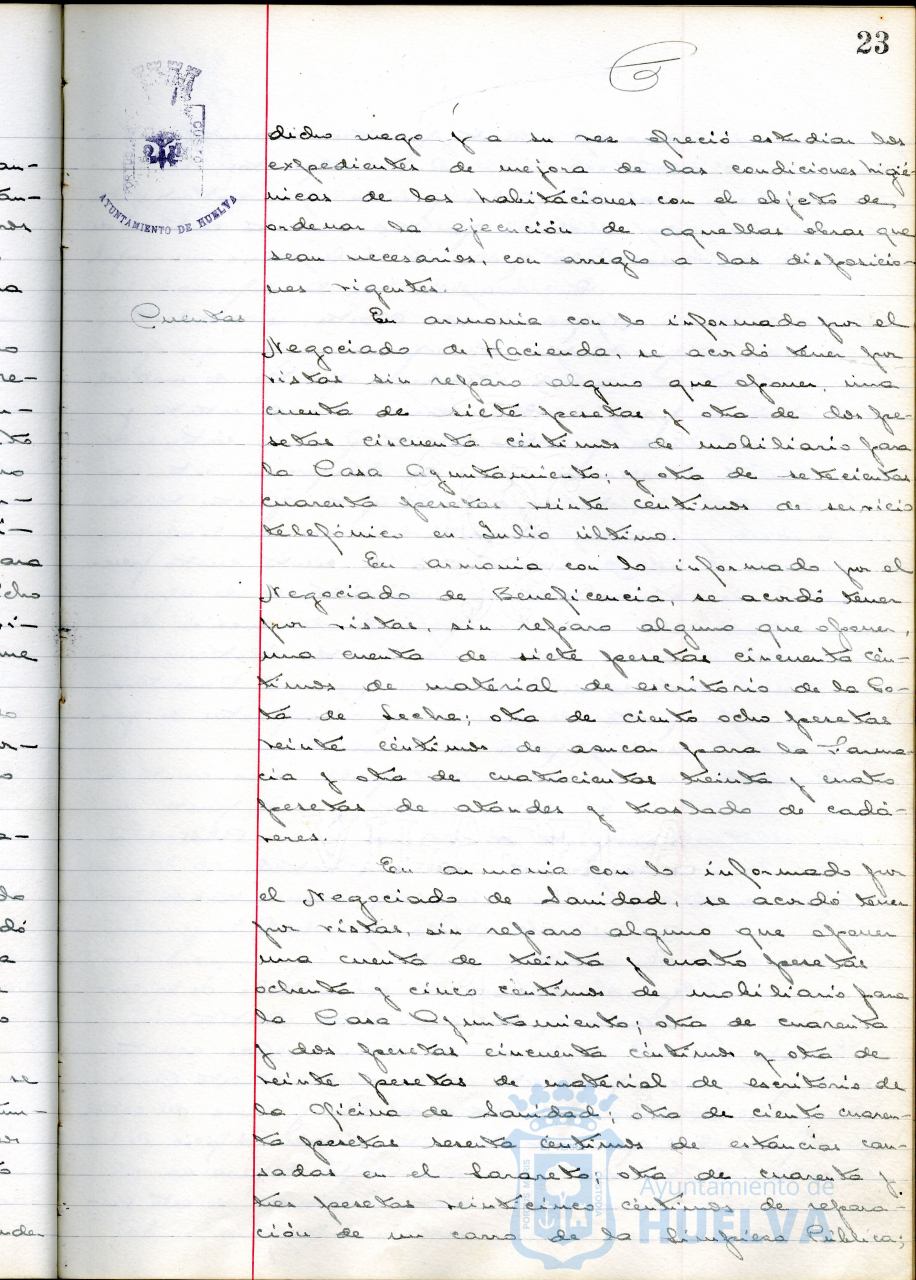 23
dicho ruego y a su vez ofreció estudiar los
expedientes de mejora de las condiciones higié-
nicas de las habitaciones con el objeto de
ordenar la ejecución de aquellas obras que
sean necesarios, con arreglo a las disposicio-
nes vigentes.
Cuentas
En armonia con lo informado por el
Negociado de Hacienda, se acordó tener por
vistas sin reparo alguno que oponer, una
cuenta de siete pesetas y otra de dos pe-
setas cincuenta céntimos de mobiliario para
la Casa Ayuntamiento; y otra de setecientas
cuarenta pesetas veinte céntimos de servicio
telefónico en Julio último.
En armonia con lo informado por el
Negociado de Beneficencia, se acordó tener
por vistas, sin reparo alguno que oponer,
una cuenta de siete pesetas cincuenta cén-
timos de material de escritorio de la Go-
ta de Leche; otra de ciento ocho pesetas
veinte céntimos de azucar para la Farma-
cia y otra de cuatrocientas treinta y cuatro
pesetas de ataudes y traslado de cadá-
veres.
En armonia con lo informado por
el Negociado de Sanidad, se acordó tener
por vistas, sin reparo alguno que oponer
una cuenta de treinta y cuatro pesetas
ochenta y cinco céntimos de mobiliario para
la Casa Ayuntamiento; otra de cuarenta
y dos pesetas cincuenta céntimos y otra de
veinte pesetas de material de escritorio de
la Oficina de Sanidad; otra de ciento cuaren-
ta pesetas sesenta céntimos de estancias cau-
sadas en el Lazareto; otra de cuarenta y
tres pesetas veinticinco céntimos de repara-
ción de un carro de la Limpieza Pública;
AYUNTAMIENTO DE HUELVA
Ayuntamiento de
HUELVA